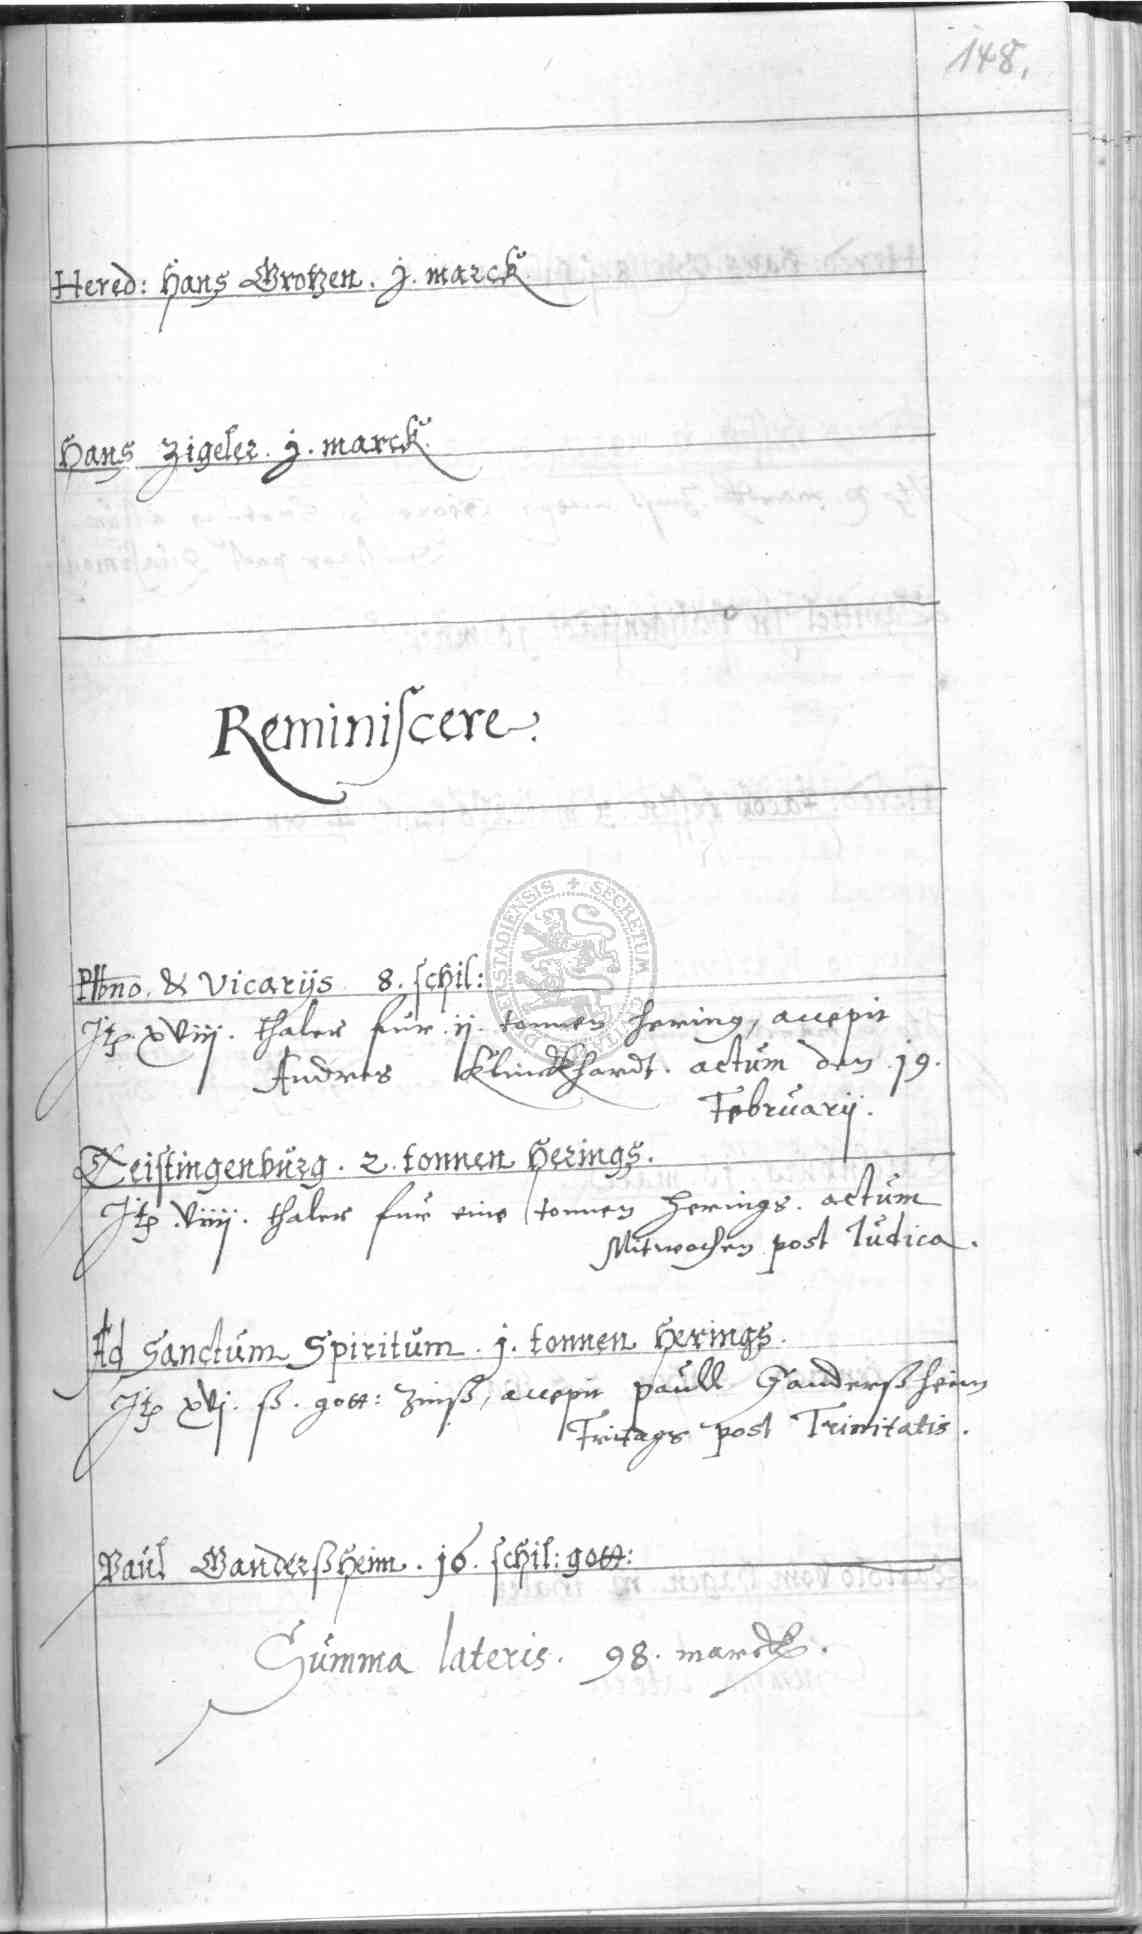 148.
Hered: Hans Grotzen. j. marck
Hans Zigeler. j. marck.
Reminiſcere.
Plbno. & Vicarijs. 8. ſchil:
SECRETUM
Jtp xViij. thaler für .ij. tonnen hering, accepit
Andres Klinckhardt. actum den .19.
Februarij.
Teiſtingenburg. 2. tonnen Herings.
Jtp Viiij. thaler für eine tonnen herings. actum
Mitwochen post Iudica.
Ad Sanctum Spiritum. j. tonnen Herings.
Jtp xVj. ß. gott: Zinß, accepit paull Ganderßheim
Fritags post Trinitatis.
Paul Ganderßheim. 16. ſchil: gott:
Summa lateris. 98. marck.